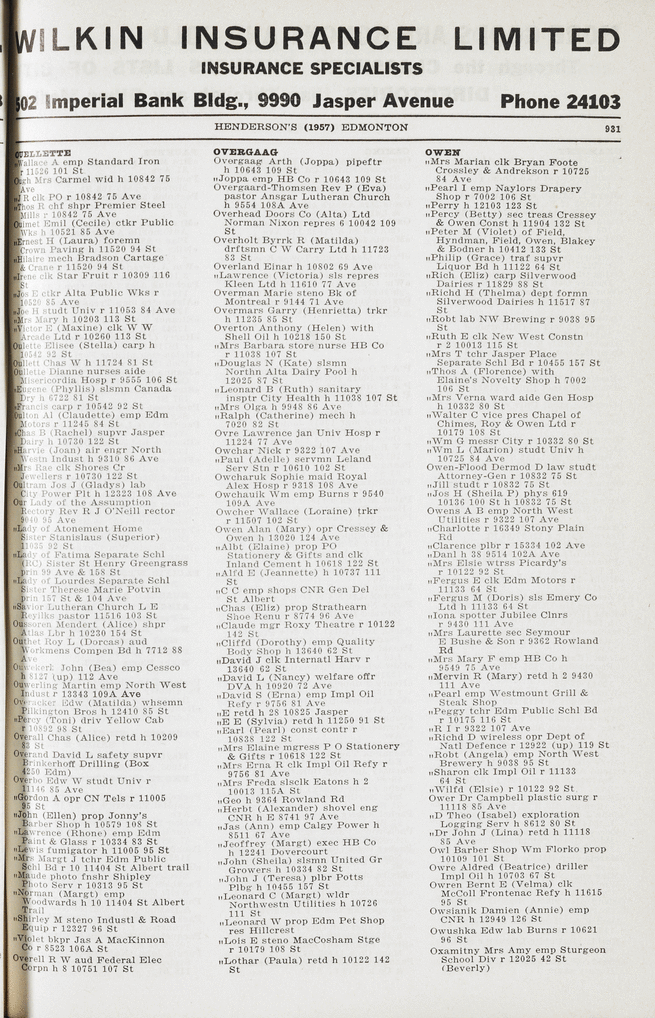 WILKIN INSURANCE LIMITED
INSURANCE SPECIALISTS
502 Imperial Bank Bldg., 9990 Jasper Avenue Phone 24103
HENDERSON'S (1957) EDMONTON 931
OUELLETTE
„Wallace A emp Standard Iron
r 11526 101 St
Ough Mrs Carmel wid h 10842 75
Ave
„J R clk PO r 10842 75 Ave
„Thos R chf shpr Premier Steel
Mills r 10842 75 Ave
Ouimet Emil (Cecile) ctkr Public
Wks h 10521 85 Ave
„Ernest H (Laura) foremn
Crown Paving h 11520 94 St
„Hilaire mech Bradson Cartage
& Crane r 11520 94 St
„Irene clk Star Fruit r 10309 116
St
„Jos E ctkr Alta Public Wks r
10520 85 Ave
„Joe H studt Univ r 11053 84 Ave
„Mrs Mary h 10203 113 St
„Victor E (Maxine) clk W W
Arcade Ltd r 10260 113 St
Oulette Elisee (Stella) carp h
10542 92 St
Oullett Chas W h 11724 81 St
Oullette Dianne nurses aide
Misericordia Hosp r 9555 106 St
„Eugene (Phyllis) slsmn Canada
Dry h 6722 81 St
„Francis carp r 10542 92 St
Oulton Al (Claudette) emp Edm
Motors r 11245 84 St
„Chas B (Rachel) supvr Jasper
Dairy h 10730 122 St
„Harvie (Joan) air engr North
Westn Indust h 9310 86 Ave
„Mrs Rae clk Shores Cr
Jewellers r 10730 122 St
Oultram Jos J (Gladys) lab
City Power Plt h 12323 108 Ave
Our Lady of the Assumption
Rectory Rev R J O'Neill rector
9040 95 Ave
„Lady of Atonement Home
Sister Stanislaus (Superior)
11035 92 St
„Lady of Fatima Separate Schl
(RC) Sister St Henry Greengrass
prin 99 Ave & 158 St
„Lady of Lourdes Separate Schl
Sister Therese Marie Potvin
prin 157 St & 104 Ave
„Savior Lutheran Church L E
Reyilks pastor 11516 103 St
Oussoren Mendert (Alice) shpr
Atlas Lbr h 10230 154 St
Outhet Roy L (Dorcas) aud
Workmens Compen Bd h 7712 88
Ave
Ouwekerk John (Bea) emp Cessco
h 8127 (up) 112 Ave
Ouwerling Martin emp North West
Indust r 13343 109A Ave
Overacker Edw (Matilda) whsemn
Pilkington Bros h 12410 85 St
„Percy (Toni) driv Yellow Cab
r 10892 98 St
Overall Chas (Alice) retd h 10209
83 St
Overand David L safety supvr
Brinkerhoff Drilling (Box
4250 Edm)
Overbo Edw W studt Univ r
11146 85 Ave
„Gordon A opr CN Tels r 11005
95 St
„John (Ellen) prop Jonny's
Barber Shop h 10579 108 St
„Lawrence (Rhone) emp Edm
Paint & Glass r 10334 83 St
„Lewis fumigator h 11005 95 St
„Mrs Margt J tchr Edm Public
Schl Bd r 10 11404 St Albert trail
„Maude photo fnshr Shipley
Photo Serv r 10313 95 St
„Norman (Margt) emp
Woodwards h 10 11404 St Albert
Trail
„Shirley M steno Industl & Road
Equip r 12327 96 St
„Violet bkpr Jas A MacKinnon
Co r 8523 106A St
Overell R W aud Federal Elec
Corpn h 8 10751 107 St
OVERGAAG
Overgaag Arth (Joppa) pipeftr
h 10643 109 St
„Joppa emp HB Co r 10643 109 St
Overgaard-Thomsen Rev P (Eva)
pastor Ansgar Lutheran Church
h 9554 108A Ave
Overhead Doors Co (Alta) Ltd
Norman Nixon repres 6 10042 109
St
Overholt Byrrk R (Matilda)
drftsmn C W Carry Ltd h 11723
83 St
Overland Einar h 10802 69 Ave
„Lawrence (Victoria) sls repres
Kleen Ltd h 11610 77 Ave
Overman Marie steno Bk of
Montreal r 9144 71 Ave
Overmars Garry (Henrietta) trkr
h 11235 85 St
Overton Anthony (Helen) with
Shell Oil h 10218 150 St
„Mrs Barbara store nurse HB Co
r 11038 107 St
„Douglas N (Kate) slsmn
Northn Alta Dairy Pool h
12025 87 St
„Leonard B (Ruth) sanitary
insptr City Health h 11038 107 St
„Mrs Olga h 9948 86 Ave
„Ralph (Catherine) mech h
7020 82 St
Ovre Lawrence jan Univ Hosp r
11224 77 Ave
Owchar Nick r 9322 107 Ave
„Paul (Adelle) servmn Leland
Serv Stn r 10610 102 St
Owcharuk Sophie maid Royal
Alex Hosp r 9318 108 Ave
Owchaulk Wm emp Burns r 9540
109A Ave
Owcher Wallace (Loraine) trkr
r 11507 102 St
Owen Alan (Mary) opr Cressey &
Owen h 13020 124 Ave
„Albt (Elaine) prop PO
Stationery & Gifts and clk
Inland Cement h 10618 122 St
„Alfd E (Jeannette) h 10737 111
St
„C C emp shops CNR Gen Del
St Albert
„Chas (Eliz) prop Strathearn
Shoe Renu r 8774 96 Ave
„Claude mgr Roxy Theatre r 10122
142 St
„Cliffd (Dorothy) emp Quality
Body Shop h 13640 62 St
„David J clk Internatl Harv r
13640 62 St
„David L (Nancy) welfare offr
DVA h 10920 72 Ave
„David S (Erna) emp Impl Oil
Refy r 9756 81 Ave
„E retd h 28 10825 Jasper
„E E (Sylvia) retd h 11250 91 St
„Earl (Pearl) const contr r
10838 122 St
„Mrs Elaine mgress P O Stationery
& Gifts r 10618 122 St
„Mrs Erna R clk Impl Oil Refy r
9756 81 Ave
„Mrs Freda slsclk Eatons h 2
10013 115A St
„Geo h 9364 Rowland Rd
„Herbt (Alexander) shovel eng
CNR h E 8741 97 Ave
„Jas (Ann) emp Calgy Power h
8511 67 Ave
„Jeoffrey (Margt) exec HB Co
h 12241 Dovercourt
„John (Sheila) slsmn United Gr
Growers h 10334 82 St
„John J (Teresa) plbr Potts
Plbg h 10455 157 St
„Leonard C (Margt) wldr
Northwestn Utilities h 10726
111 St
„Leonard W prop Edm Pet Shop
res Hillcrest
„Lois E steno MacCosham Stge
r 10179 108 St
„Lothar (Paula) retd h 10122 142
St
OWEN
„Mrs Marian clk Bryan Foote
Crossley & Andrekson r 10725
84 Ave
„Pearl I emp Naylors Drapery
Shop r 7002 106 St
„Perry h 12103 123 St
„Percy (Betty) sec treas Cressey
& Owen Const h 11904 132 St
„Peter M (Violet) of Field,
Hyndman, Field, Owen, Blakey
& Bodner h 10412 133 St
„Philip (Grace) traf supvr
Liquor Bd h 11122 64 St
„Rich (Eliz) carp Silverwood
Dairies r 11829 88 St
„Richd H (Thelma) dept formn
Silverwood Dairies h 11517 87
St
„Robt lab NW Brewing r 9038 95
St
„Ruth E clk New West Constn
r 2 10013 115 St
„Mrs T tchr Jasper Place
Separate Schl Bd r 10455 157 St
„Thos A (Florence) with
Elaine's Novelty Shop h 7002
106 St
„Mrs Verna ward aide Gen Hosp
h 10332 80 St
„Walter C vice pres Chapel of
Chimes, Roy & Owen Ltd r
10179 108 St
„Wm G messr City r 10332 80 St
„Wm L (Marion) studt Univ h
10725 84 Ave
Owen-Flood Dermod D law studt
Attorney-Gen r 10832 75 St
„Jill studt r 10832 75 St
„Jos H (Sheila P) phys 619
10136 100 St h 10832 75 St
Owens A B emp North West
Utilities r 9322 107 Ave
„Charlotte r 16349 Stony Plain
Rd
„Clarence plbr r 15334 102 Ave
„Danl h 38 9514 102A Ave
„Mrs Elsie wtrss Picardy's
r 10122 92 St
„Fergus E clk Edm Motors r
11133 64 St
„Fergus M (Doris) sls Emery Co
Ltd h 11133 64 St
„Iona spotter Jubilee Clnrs
r 9430 111 Ave
„Mrs Laurette sec Seymour
E Bushe & Son r 9362 Rowland
Rd
„Mrs Mary F emp HB Co h
9549 75 Ave
„Mervin R (Mary) retd h 2 9430
111 Ave
„Pearl emp Westmount Grill &
Steak Shop
„Peggy tchr Edm Public Schl Bd
r 10175 116 St
„R I r 9322 107 Ave
„Richd D wireless opr Dept of
Natl Defence r 12922 (up) 119 St
„Robt (Angela) emp North West
Brewery h 9038 95 St
„Sharon clk Impl Oil r 11133
64 St
„Wilfd (Elsie) r 10122 92 St
Ower Dr Campbell plastic surg r
11118 85 Ave
„D Theo (Isabel) exploration
Logging Serv h 8612 80 St
„Dr John J (Lina) retd h 11118
85 Ave
Owl Barber Shop Wm Florko prop
10109 101 St
Owre Aldred (Beatrice) driller
Impl Oil h 10703 67 St
Owren Bernt E (Velma) clk
McColl Frontenac Refy h 11615
95 St
Owsianik Damien (Annie) emp
CNR h 12949 126 St
Owushka Edw lab Burns r 10621
96 St
Oxamitny Mrs Amy emp Sturgeon
School Div r 12025 42 St
(Beverly)